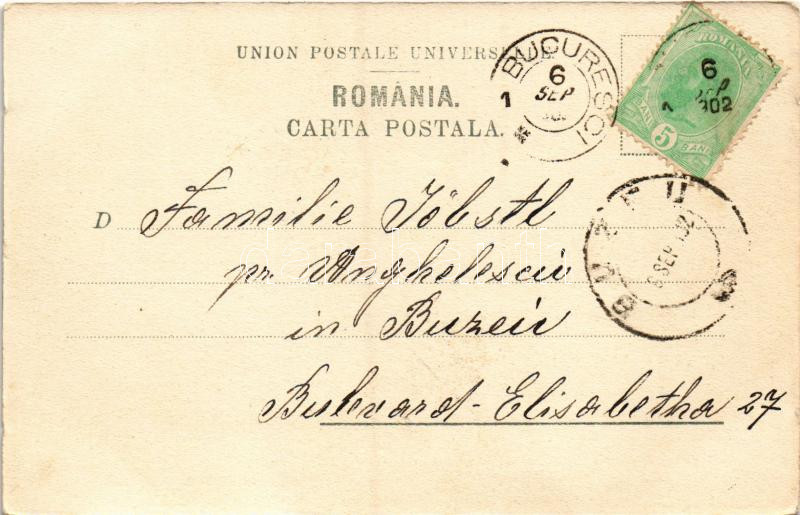 UNION POSTALE UNIVERSELLE.
ROMÂNIA.
CARTA POSTALA.
BUCURESCI
6
SEP
1
ROMANIA
6
SEP
902
5
BANI
BUZEU
6 SEP 902
D Familie Jöbstl
pr. Anghelescu
in Buzeu
Bulevard-Elisabetha 27